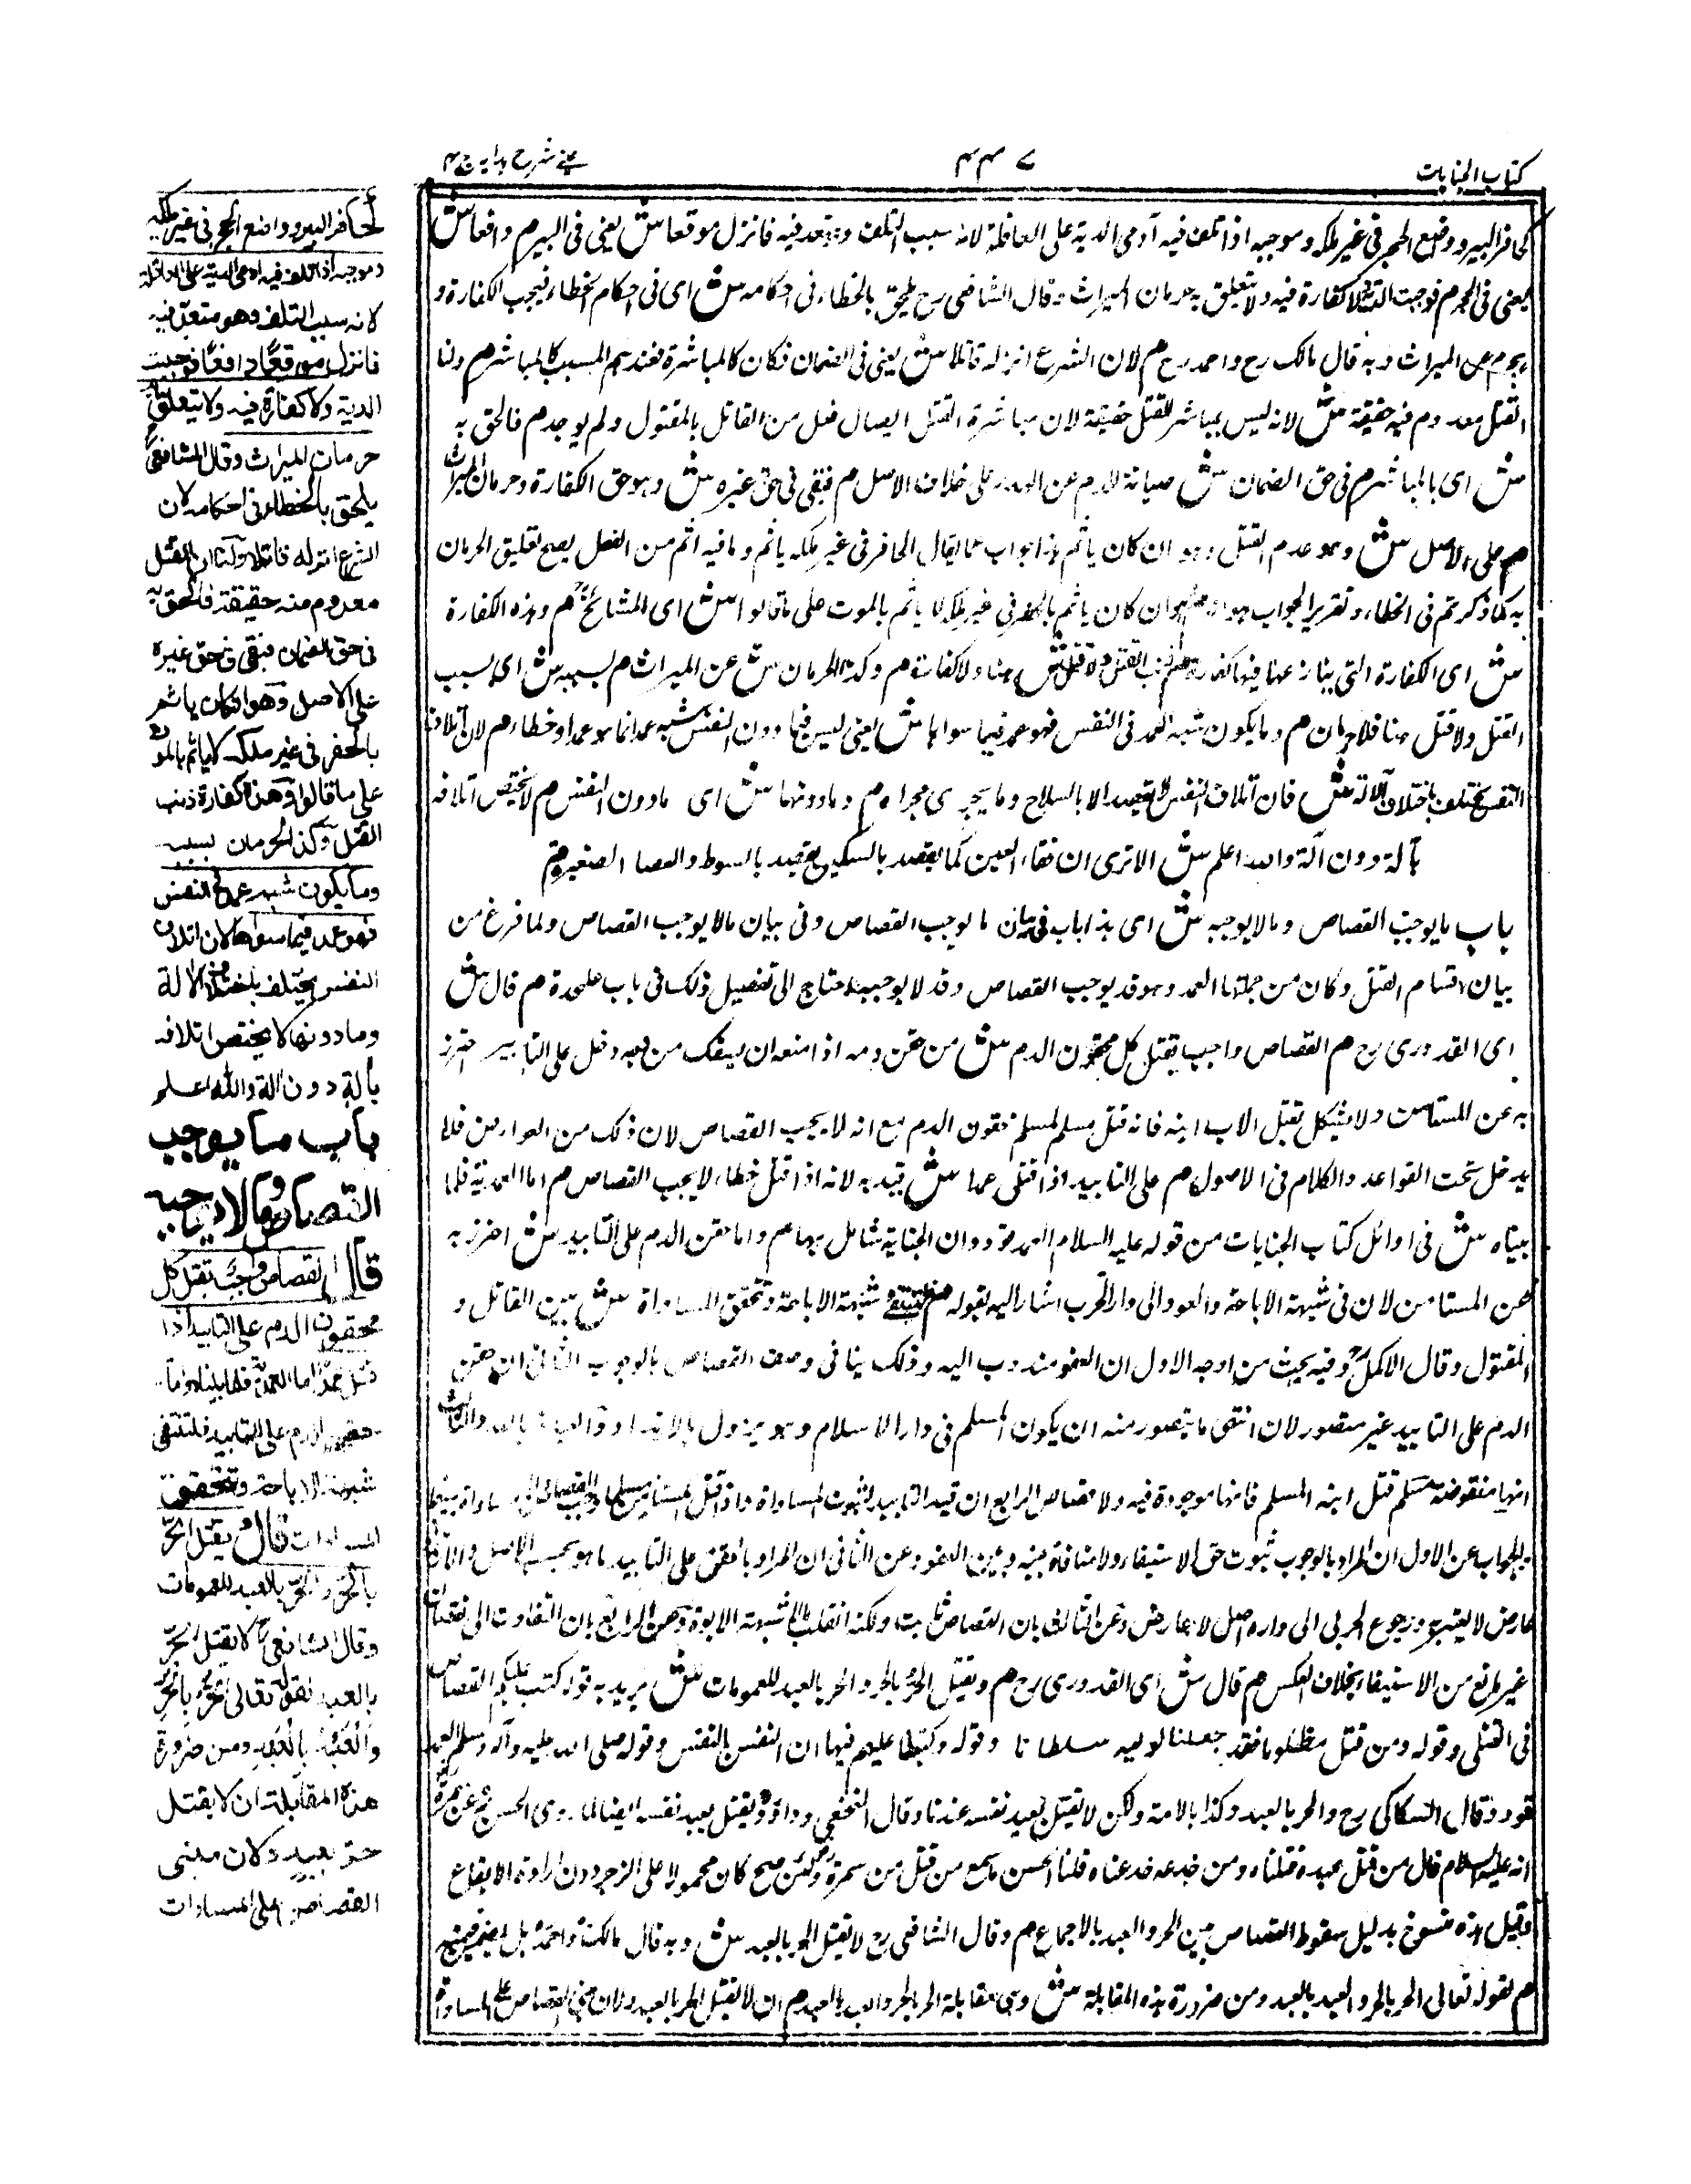 كتاب الجنايات
عينى شرح هدايه ج ٤
كحافر البير وواضع الحجر فى غير ملكه وموجبه اذا تلف فيه آدمى الدية على العاقلة لانه سبب التلف وهو متعد فيه فانزل موقعا ش يعنى فى البير م دافعا ش
يعنى فى الحجر م فوجبت الدية ولا كفارة فيه ولا يتعلق به حرمان الميراث وقال الشافعى رح يلحق بالخطاء فى احكامه ش اى فى احكام الخطاء فيجب الكفارة و
يحرم عن الميراث وبه قال مالك رح واحمد رح م لان الشرع انزله قاتلا ش يعنى فى الضمان فكان كالمباشرة فعندهم المسبب كالمباشر م ولنا
القتل معدوم فيه حقيقة ش لانه ليس بمباشر للقتل حقيقة لان مباشرة القتل ايصال فعل من القاتل بالمقتول ولم يوجد م فالحق به
ش اى بالمباشر م فى حق الضمان ش صيانة للدم عن الهدر على خلاف الاصل م فبقى فى حق غيره ش وهو حق الكفارة وحرمان الميراث
م على الاصل ش وهو عدم القتل وهو ان كان ياثم هذا جواب عما يقال الحافر فى غير ملكه ياثم وما فيه اثم من الفعل يصح تعليق الحرمان
به كما ذكرتم فى الخطاء وتقرير الجواب هو ان كان ياثم بالحفر فى غير ملكه لا ياثم بالموت على ما قالوا ش اى المشائخ م وهذه الكفارة
ش اى الكفارة التى يتنازعها فيها كفارة ذنب القتل ولا قتل ش هنا ولا كفارة م وكذا الحرمان ش عن الميراث م بسببه ش اى بسبب
القتل ولا قتل هنا فلا حرمان م وما يكون شبه العمد فى النفس فهو عمد فيما سواها ش يعنى ليس فيما دون النفس شبه عمد انما هو عمد او خطاء م لان اتلاف
النفس يختلف باختلاف الآلة ش فان اتلاف النفس لا يقصد الا بالسلاح وما يجرى مجراه م وما دونها ش اى ما دون النفس م لا يختص اتلافه
بآلة دون آلة والله اعلم ش الا ترى ان فقاء العين كما يقصد بالسكين يقصد بالسوط والعصا الصغير م
باب ما يوجب القصاص وما لا يوجبه ش اى هذا باب فى بيان ما يوجب القصاص وفى بيان ما لا يوجب القصاص ولما فرغ من
بيان اقسام القتل وكان من جملتها العمد وهو قد يوجب القصاص وقد لا يوجبه احتاج الى تفصيل ذلك فى باب على حدة م قال ش
اى القدورى رح م القصاص واجب بقتل كل محقون الدم ش من حقن دمه اذا منعه ان يسفك من بعد دخل على التابيد احترز
به عن المستامن ولا يشكل بقتل الاب ابنه فانه قتل مسلم لمسلم محقون الدم مع انه لا يجب القصاص لان ذلك من العوارض فلا
يدخل تحت القواعد والكلام فى الاصول م على التابيد اذا قتل عمدا ش قيد به لانه اذا قتل خطاء لا يجب القصاص م اما العمدية فلما
بيناه ش فى اوائل كتاب الجنايات من قوله عليه السلام العمد قود وان الجناية تتكامل بها م واما حقن الدم على التابيد ش احترز به
عن المستامن لان فى شبهة الاباحة والعود الى دار الحرب اشار اليه بقوله م فلتنتفى شبهة الاباحة وتتحقق المساواة ش بين القاتل و
المقتول وقال الاكمل وفيه بحث من اوجه الاول ان العفو مندوب اليه وذلك ينافى وصف القصاص بالوجوب الثانى ان حقن
الدم على التابيد غير متصور لان انتهى ما يتصور منه ان يكون المسلم فى دار الاسلام وهو يزول بالارتداد والعياذ بالله والثالث
انها منقوضة بمسلم قتل ابنه المسلم فانها موجودة فيه ولا قصاص الرابع ان قيد التابيد لثبوت المساواة واذا قتل المستامن مسلما وجب القصاص ولا مساواة بينهما
والجواب عن الاول ان المراد بالوجوب ثبوت حق الاستيفاء ولا منافاة بينه وبين العفو وعن الثانى ان المراد بالحقن على التابيد ما هو بحسب الاصل والارتداد
عارض لا يعتبر ورجوع الحربى الى داره اصل لا عارض وعن الثالث بان القصاص ثابت ولكنه انقلب مالا لشبهة الابوة وعن الرابع بان التفاوت الى نقصان
غير مانع من الاستيفاء بخلاف العكس م قال ش اى القدورى رح م ويقتل الحر بالحر والحر بالعبد للعمومات ش يريد به قوله كتب عليكم القصاص
فى القتلى وقوله ومن قتل مظلوما فقد جعلنا لوليه سلطانا وقوله وكتبنا عليهم فيها ان النفس بالنفس وقوله صلى الله عليه وآله وسلم العمد
قود وقال السكاكى رح والحر بالعبد وكذا بالامة ولكن لا يقتل بعبد نفسه عندنا وقال النخعى وداؤد يقتل بعبد نفسه ايضا لما روى الحسن عن سمرة
انه عليه السلام قال من قتل عبده قتلناه ومن جدعه جدعناه قلنا الحسن ما سمع من قتل من سمرة ولئن صح كان محمولا على الزجر دون ارادة الايقاع
وقيل هذه منسوخ بدليل سقوط القصاص بين الحر والعبد بالاجماع م وقال الشافعى رح لا يقتل الحر بالعبد ش وبه قال مالك واحمد
م لقوله تعالى الحر بالحر والعبد بالعبد ومن ضرورة هذه المقابلة ش وهى مقابلة الحر بالحر والعبد بالعبد م ان لا يقتل الحر بالعبد ولان مبنى القصاص على المساواة
كحافر البير وواضع الحجر فى غير ملكه
وموجبه اذا تلف فيه آدمى الدية على العاقلة
لانه سبب التلف وهو متعد فيه
فانزل موقعًا دافعًا فوجبت
الدية ولا كفارة فيه ولا يتعلق به
حرمان الميراث وقال الشافعى
يلحق بالخطاء فى احكامه لان
الشرع انزله قاتلا ولنا ان القتل
معدوم منه حقيقة فالحق به
فى حق الضمان فبقى فى حق غيره
على الاصل وهو ان كان ياثم
بالحفر فى غير ملكه لا ياثم بالموت
على ما قالوا وهذه كفارة ذنب
القتل وكذا الحرمان بسببه
وما يكون شبه عمد فى النفس
فهو عمد فيما سواها لان اتلاف
النفس يختلف باختلاف الآلة
وما دونها لا يختص اتلافه
بآلة دون آلة والله اعلم
باب ما يوجب
القصاص وما لا يوجبه
قال القصاص واجب بقتل كل
محقون الدم على التابيد اذا
قتل عمدًا اما العمدية فلما بيناه واما
حقن الدم على التابيد فلتنتفى
شبهة الاباحة وتتحقق
المساوات قال ويقتل الحر
بالحر والحر بالعبد للعمومات
وقال الشافعى لا يقتل الحر
بالعبد لقوله تعالى الحر بالحر
والعبد بالعبد ومن ضرورة
هذه المقابلة ان لا يقتل
حر بعبد ولان مبنى
القصاص على المساوات